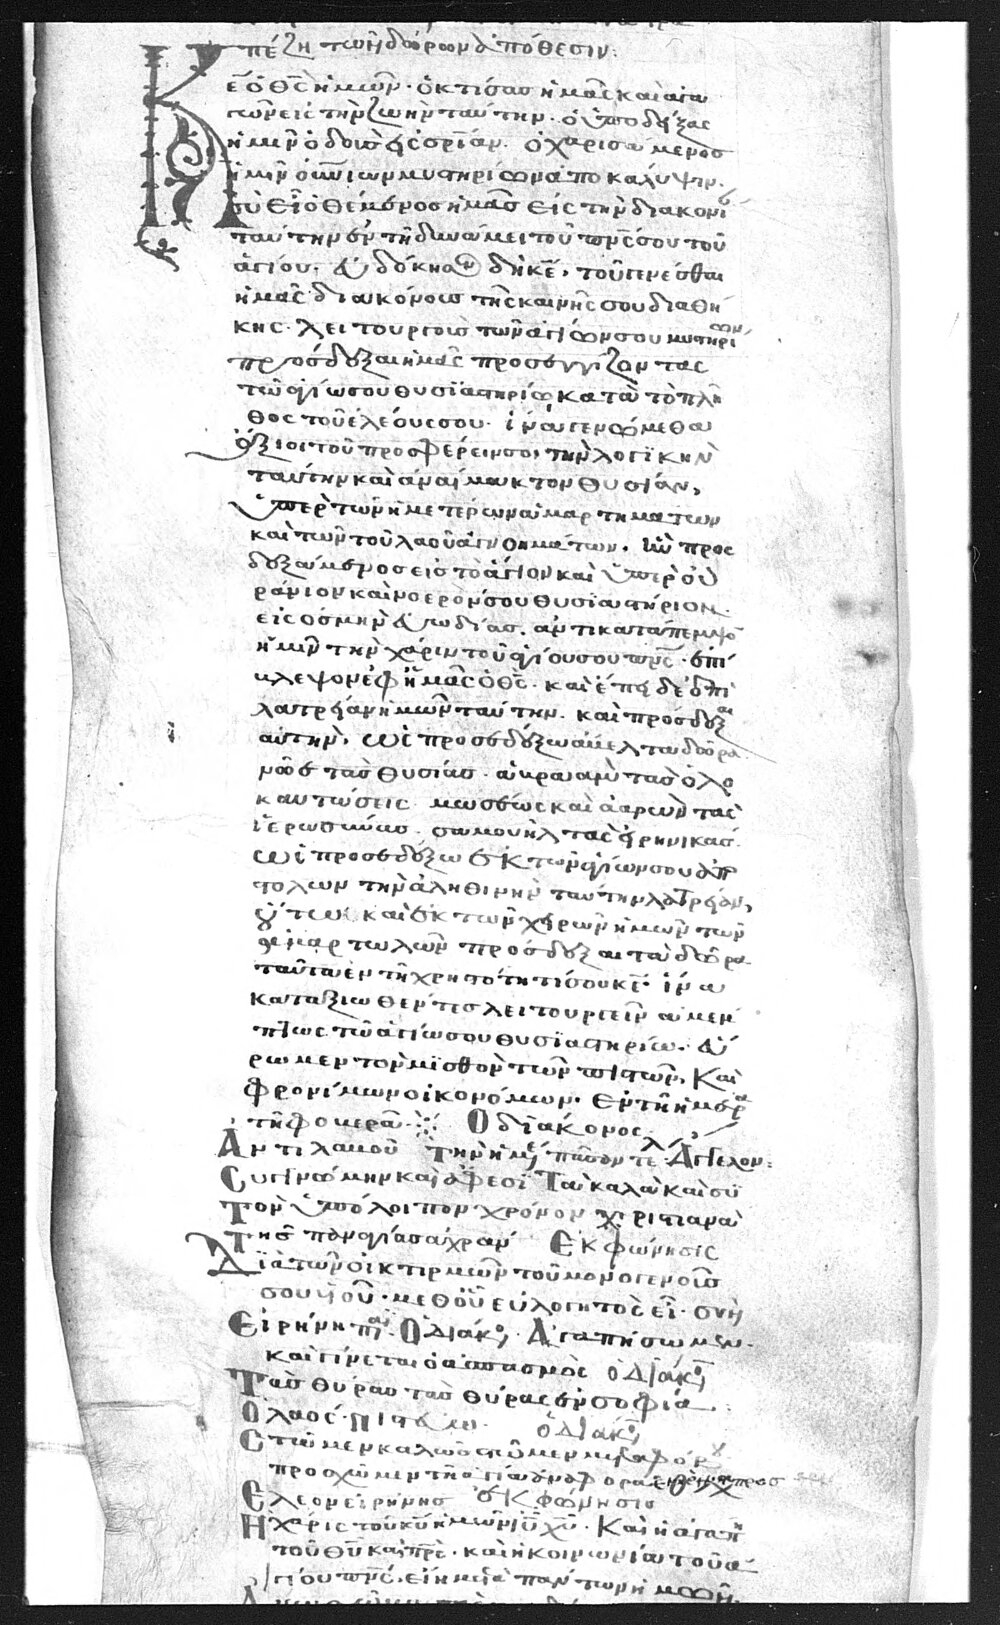 πέζη τῶν δώρων ἀπόθεσιν:
Κε ὁ θς ἡμῶν· ὁ κτίσας ἡμᾶς καὶ ἀγα
γὼν εἰς τὴν ζωὴν ταύτην· ὁ ὑποδείξας
ἡμῖν ὁδοὺς εἰς σριαν· ὁ χαρισάμενος
ἡμῖν οὐνιων μυστηρίων ἀποκάλυψιν·
σὺ εἶ ὁ θέμενος ἡμᾶς εἰς τὴν διακονί
ταύτην ἐν τῇ δυνάμει τοῦ πνς σου τοῦ
ἁγίου· εὐδόκησον δὴ κε, τοῦ γενέσθαι
ἡμᾶς διακόνους τῆς καινῆς σου διαθή
κης· λειτουργοὺς τῶν ἁγίων σου μυστηρί
πρόσδεξαι ἡμᾶς προσεγγίζοντας
τῷ ἁγίω σου θυσιαστηρίω κατὰ τὸ πλῆ
θος τοῦ ἐλέους σου· ἵνα γενώμεθα
ἄξιοι τοῦ προσφέρειν σοι τὴν λογικὴν
ταύτην καὶ ἀναίμακτον θυσίαν,
ὑπὲρ τῶν ἡμετέρων ἁμαρτημάτων
καὶ τῶν τοῦ λαοῦ ἀγνοημάτων· ἣν προσ
δεξάμενος εἰς τὸ ἅγιον καὶ ὑπὲρ οὐ
ράνιον καὶ νοερόν σου θυσιαστήριον
εἰς ὀσμὴν εὐωδίας· ἀντικατάπεμψο
ἡμῖν τὴν χάριν τοῦ ἁγίου σου πνς· ἐπί
βλεψον ἐφ ἡμᾶς ὁ θς· καὶ ἔπιδε ἐπὶ
λατρείαν ἡμῶν ταύτην· καὶ πρόσδεξαι
αὐτὴν, ὡς προσεδέξω ἄβελ τὰ δῶρα
νῶε τὰς θυσίας· ἀβραὰμ τὰς ὁλο
καυτώσεις· μωσέως καὶ ἀαρὼν τὰς
ἱερωσύνας· σαμουὴλ τὰς εἰρηνικάς·
ὡς προσεδέξω ἐκ τῶν ἁγίων σου ἀπο
στόλων τὴν ἀληθινὴν ταύτην λατρείαν,
οὕτως καὶ ἐκ τῶν χειρῶν ἡμῶν τῶν
ἁμαρτωλῶν πρόσδεξαι τὰ δῶρα
ταῦτα ἐν τῇ χρηστότητί σου κε· ἵνα
καταξιωθέντες λειτουργεῖν ἀμέμ
πτως τῷ ἁγίω σου θυσιαστηρίω· εὕ
ρωμεν τὸν μισθὸν τῶν πιστῶν, Καὶ
φρονίμων οἰκονόμων· ἐν τῇ ἡμέρα
τῇ φοβερᾶ· Ὁ διάκονος
Ἀντιλαβοῦ Τὴν ἡμέ πᾶσαν τελ Ἄγγελον:
Συγγνώμην καὶ ἄφεσι Τὰ καλὰ καὶ συ
Τὸν ὑπόλοιπον χρόνον Χριστιανὰ
Τῆς παναγίας ἀχραν Ἐκφώνησις
Διὰ τῶν οἰκτιρμῶν τοῦ μονογενοῦς
σου υἱοῦ· μεθ οὗ εὐλογητὸς εἶ· σὺν
Εἰρήνη πᾶσι· Ὁ διάκο· Ἀγαπήσωμεν·
καὶ γίνεται ὁ ἀσπασμὸς ὁ διάκο
Τὰς θύρας τὰς θύρας ἐν σοφία
Ὁ λαός· Πιστεύω· ὁ διάκο
Στῶμεν καλῶς στῶμεν μετὰ φόβου
πρόσχωμεν τὴν ἁγίαν ἀναφορὰ ἐν εἰρήνη προσ
Ἔλεον εἰρήνης ἐκφώνησις
Ἡ χάρις τοῦ κυ ἡμῶν ιυ χυ· Καὶ ἡ ἀγάπη
τοῦ θυ καὶ πρς· καὶ ἡ κοινωνία τοῦ ἁ
γίου πνς· εἴη μετὰ πάντων ἡμῶν·